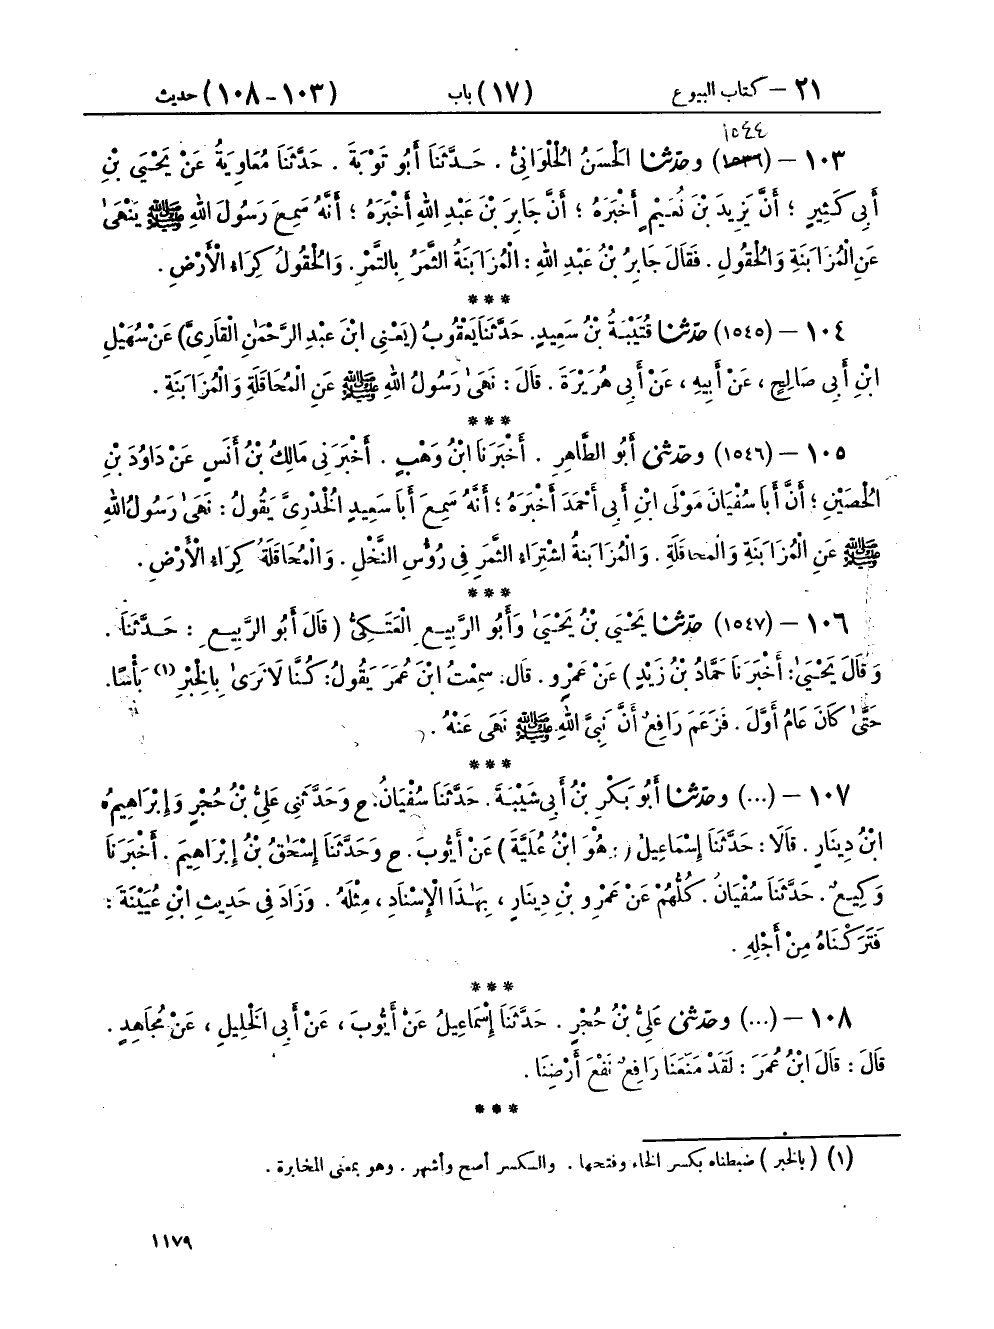 ٢١ – كتاب البيوع (١٧) باب (١٠٣ – ١٠٨) حديث
١٥٤٤
١٠٣ – (١٥٣٦) وحدثنا الْحَسَنُ الْحُلْوَانِيُّ . حَدَّثَنَا أَبُو تَوْبَةَ . حَدَّثَنَا مُعَاوِيَةُ عَنْ يَحْيَىٰ بْنِ
أَبِي كَثِيرٍ ؛ أَنَّ يَزِيدَ بْنَ نُعَيْمٍ أَخْبَرَهُ ؛ أَنَّ جَابِرَ بْنَ عَبْدِ اللهِ أَخْبَرَهُ ؛ أَنَّهُ سَمِعَ رَسُولَ اللهِ ﷺ يَنْهَىٰ
عَنِ الْمُزَابَنَةِ وَالْحُقُولِ . فَقَالَ جَابِرُ بْنُ عَبْدِ اللهِ : الْمُزَابَنَةُ الثَّمَرُ بِالتَّمْرِ . وَالْحُقُولُ كِرَاءُ الْأَرْضِ .
***
١٠٤ – (١٥٤٥) حدثنا قُتَيْبَةُ بْنُ سَعِيدٍ. حَدَّثَنَا يَعْقُوبُ (يَعْنِي ابْنَ عَبْدِ الرَّحْمَٰنِ الْقَارِيَّ) عَنْ سُهَيْلِ
ابْنِ أَبِي صَالِحٍ ، عَنْ أَبِيهِ ، عَنْ أَبِي هُرَيْرَةَ . قَالَ : نَهَىٰ رَسُولُ اللهِ ﷺ عَنِ الْمُحَاقَلَةِ وَالْمُزَابَنَةِ .
***
١٠٥ – (١٥٤٦) وحدثني أَبُو الطَّاهِرِ . أَخْبَرَنَا ابْنُ وَهْبٍ . أَخْبَرَنِي مَالِكُ بْنُ أَنَسٍ عَنْ دَاوُدَ بْنِ
الْحُصَيْنِ ؛ أَنَّ أَبَا سُفْيَانَ مَوْلَىٰ ابْنِ أَبِي أَحْمَدَ أَخْبَرَهُ ؛ أَنَّهُ سَمِعَ أَبَا سَعِيدٍ الْخُدْرِيَّ يَقُولُ : نَهَىٰ رَسُولُ اللهِ
ﷺ عَنِ الْمُزَابَنَةِ وَالْمُحَاقَلَةِ . وَالْمُزَابَنَةُ اشْتِرَاءُ الثَّمَرِ فِي رُؤُسِ النَّخْلِ . وَالْمُحَاقَلَةُ كِرَاءُ الْأَرْضِ .
***
١٠٦ – (١٥٤٧) حدثنا يَحْيَىٰ بْنُ يَحْيَىٰ وَأَبُو الرَّبِيعِ الْعَتَكِيُّ ( قَالَ أَبُو الرَّبِيعِ : حَدَّثَنَا .
وَقَالَ يَحْيَىٰ: أَخْبَرَنَا حَمَّادُ بْنُ زَيْدٍ ) عَنْ عَمْرٍو . قَالَ: سَمِعْتُ ابْنَ عُمَرَ يَقُولُ: كُنَّا لَا نَرَىٰ بِالْخِبْرِ (١) بَأْسًا.
حَتَّىٰ كَانَ عَامُ أَوَّلَ . فَزَعَمَ رَافِعٌ أَنَّ نَبِيَّ اللهِ ﷺ نَهَىٰ عَنْهُ .
***
١٠٧ – (...) وحدثنا أَبُو بَكْرِ بْنُ أَبِي شَيْبَةَ . حَدَّثَنَا سُفْيَانُ. ح وَحَدَّثَنِي عَلِيُّ بْنُ حُجْرٍ وَإِبْرَاهِيمُ
ابْنُ دِينَارٍ . قَالَا : حَدَّثَنَا إِسْمَاعِيلُ ( هُوَ ابْنُ عُلَيَّةَ ) عَنْ أَيُّوبَ . ح وَحَدَّثَنَا إِسْحَٰقُ بْنُ إِبْرَاهِيمَ . أَخْبَرَنَا
وَكِيعٌ . حَدَّثَنَا سُفْيَانُ . كُلُّهُمْ عَنْ عَمْرِو بْنِ دِينَارٍ ، بِهَٰذَا الْإِسْنَادِ ، مِثْلَهُ . وَزَادَ فِي حَدِيثِ ابْنِ عُيَيْنَةَ :
فَتَرَكْنَاهُ مِنْ أَجْلِهِ .
***
١٠٨ – (...) وحدثني عَلِيُّ بْنُ حُجْرٍ . حَدَّثَنَا إِسْمَاعِيلُ عَنْ أَيُّوبَ ، عَنْ أَبِي الْخَلِيلِ ، عَنْ مُجَاهِدٍ .
قَالَ : قَالَ ابْنُ عُمَرَ : لَقَدْ مَنَعَنَا رَافِعٌ نَفْعَ أَرْضِنَا .
***
(١) (بالخبر) ضبطناه بكسر الخاء وفتحها . والكسر أصح وأشهر . وهو بمعنى المخابرة .
١١٧٩